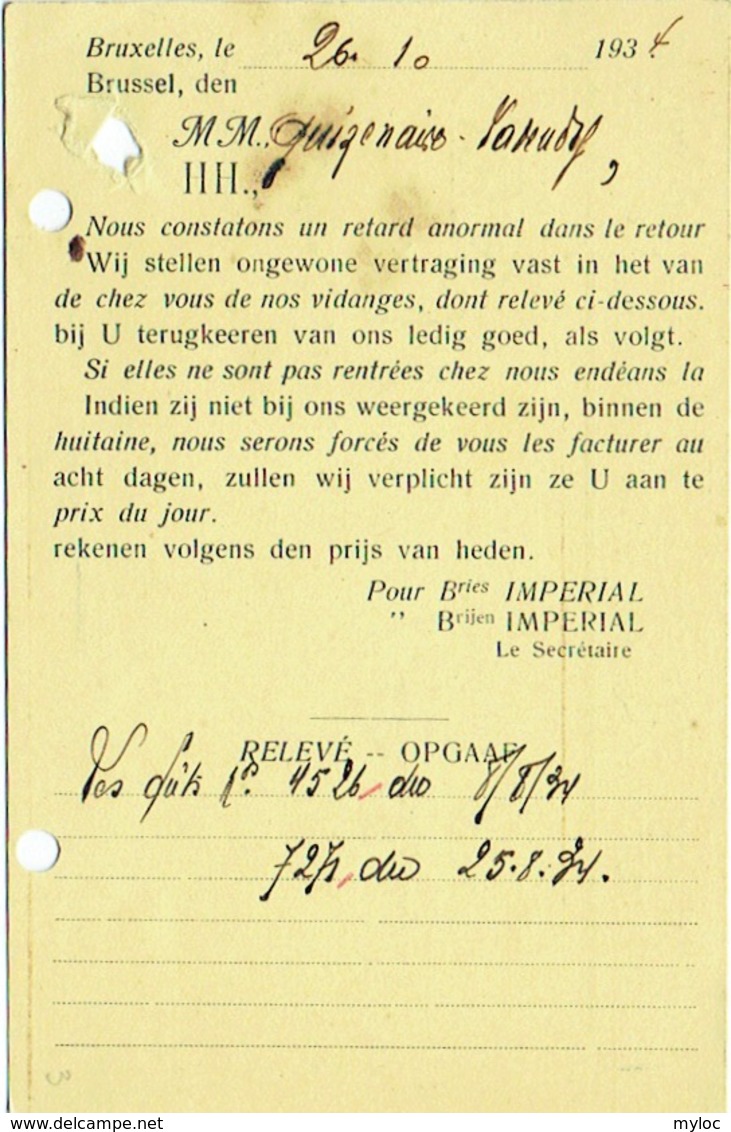 Bruxelles, le 26. 10 1934
Brussel, den
MM.,
HH.,
Nous constatons un retard anormal dans le retour
Wij stellen ongewone vertraging vast in het van
de chez vous de nos vidanges, dont relevé ci-dessous.
bij U terugkeeren van ons ledig goed, als volgt.
Si elles ne sont pas rentrées chez nous endéans la
Indien zij niet bij ons weergekeerd zijn, binnen de
huitaine, nous serons forcés de vous les facturer au
acht dagen, zullen wij verplicht zijn ze U aan te
prix du jour.
rekenen volgens den prijs van heden.
Pour Bries IMPERIAL
" Brijen IMPERIAL
Le Secrétaire
RELEVÉ -- OPGAAF
fûts 4526, du 8/8/34
du 25.8.34.
delcampe.net
myloc